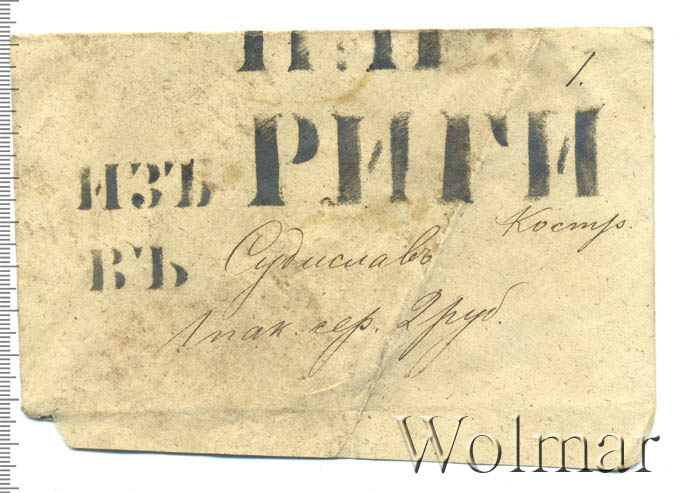 1.
ИЗЪ РИГИ
Костр.
ВЪ Судиславъ
1 пак. сер. 2 руб.
Wolmar